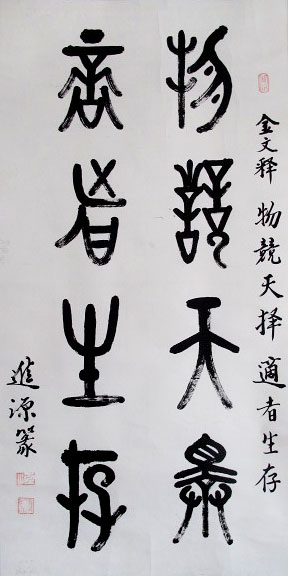 金文释 物競天择 適者生存
物競天择
適者生存
進源篆